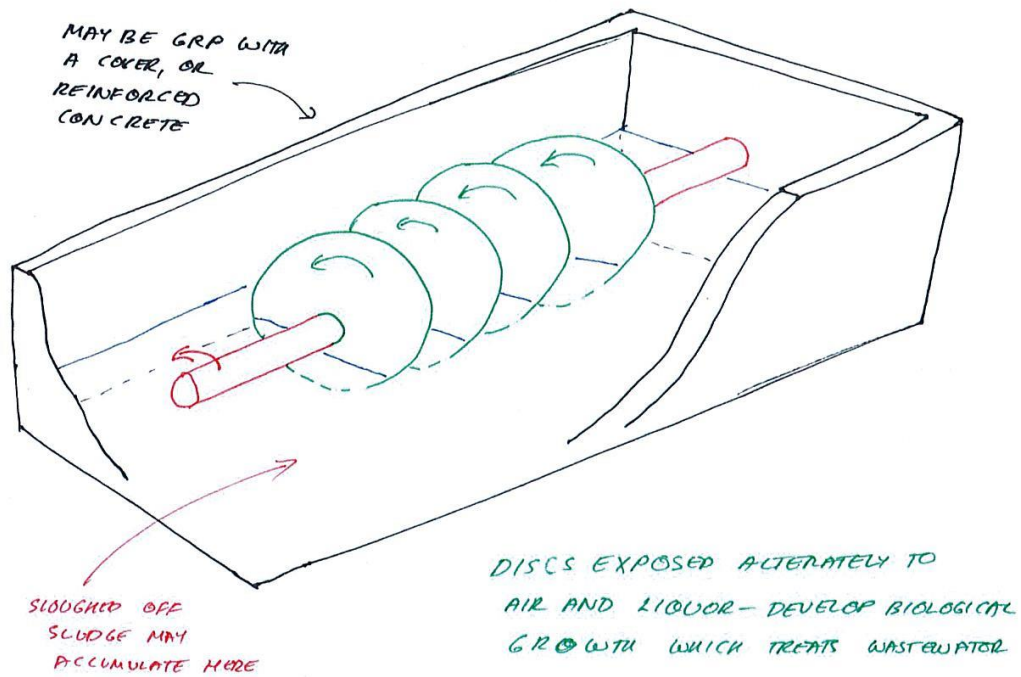 MAY BE GRP WITH
A COVER, OR
REINFORCED
CONCRETE
SLOUGHED OFF
SLUDGE MAY
ACCUMULATE HERE
DISCS EXPOSED ALTERATELY TO
AIR AND LIQUOR - DEVELOP BIOLOGICAL
GROWTH WHICH TREATS WASTEWATOR